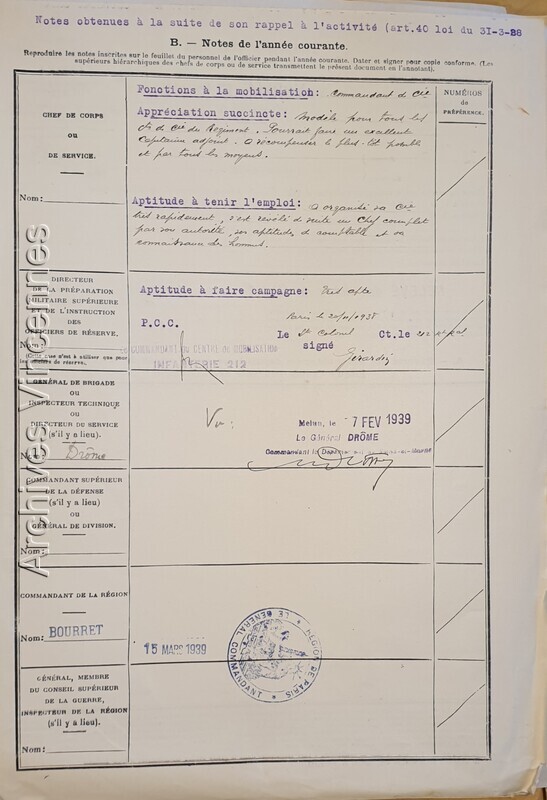 Notes obtenues à la suite de son rappel à l'activité (art.40 loi du 31-3-28
B. — Notes de l'année courante.
Reproduire les notes inscrites sur le feuillet du personnel de l'officier pendant l'année courante. Dater et signer pour copie conforme. (Les
supérieurs hiérarchiques des chefs de corps ou de service transmettent le présent document en l'annotant).
CHEF DE CORPS
OU
DE SERVICE.
Nom:
Fonctions à la mobilisation: Commandant de Cie
Appréciation succincte: Modèle pour tous les
Cts de Cie du Régiment. Pourrait faire un excellent
Capitaine adjoint. A récompenser le plus tôt possible
et par tous les moyens.
Aptitude à tenir l'emploi: A organisé sa Cie
très rapidement, s'est révélé de suite un Chef complet
par son autorité, ses aptitudes de comptable et sa
connaissance des hommes.
NUMÉROS
de
PRÉFÉRENCE.
DIRECTEUR
DE LA PRÉPARATION
MILITAIRE SUPÉRIEURE
DE L'INSTRUCTION
DES
OFFICIERS DE RÉSERVE.
Nom:
(Cette case n'est à utiliser que pour
officiers de réserve).
Aptitude à faire campagne: Très apte
Paris le 20/11/1938
P.C.C.
Le Lt Colonel Ct.le 212
signé
Girardin
Le COMMANDANT du CENTRE de MOBILISATION
INFANTERIE 212
GÉNÉRAL DE BRIGADE
OU
INSPECTEUR TECHNIQUE
OU
DIRECTEUR DU SERVICE
(s'il y a lieu).
Nom: Drôme
Vu:
Melun, le 7 FEV 1939
Le Général DRÔME
Commandant la
COMMANDANT SUPÉRIEUR
DE LA DÉFENSE
(s'il y a lieu)
OU
GÉNÉRAL DE DIVISION.
Nom:
COMMANDANT DE LA RÉGION
Nom: BOURRET
15 MARS 1939
RÉGION DE PARIS
LE GÉNÉRAL COMMANDANT
GÉNÉRAL, MEMBRE
DU CONSEIL SUPÉRIEUR
DE LA GUERRE,
INSPECTEUR DE LA RÉGION
(s'il y a lieu).
Nom:
Archives Vincennes